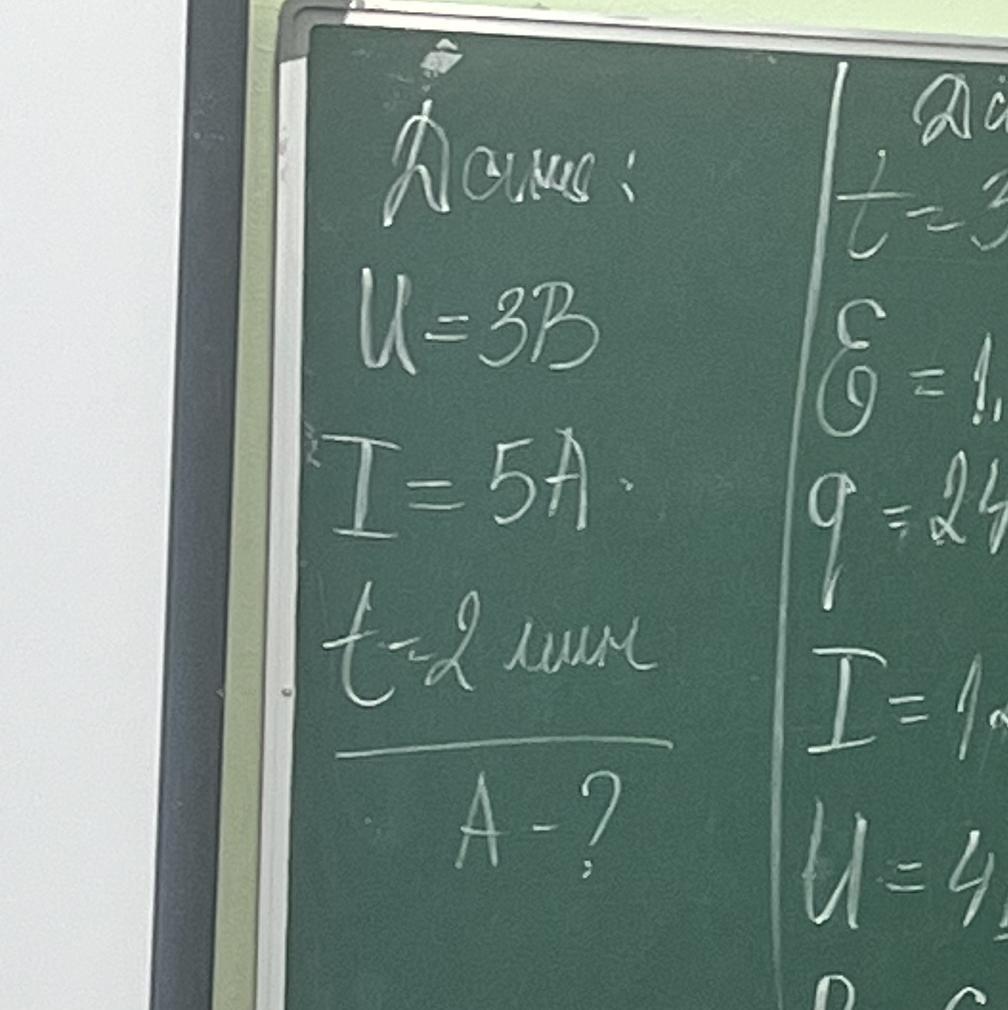 Дано:
U = 3В
I = 5А
t = 2 мин
А - ?
Да
t = 3
ℰ = 1,
q = 24
I = 1
U = 4